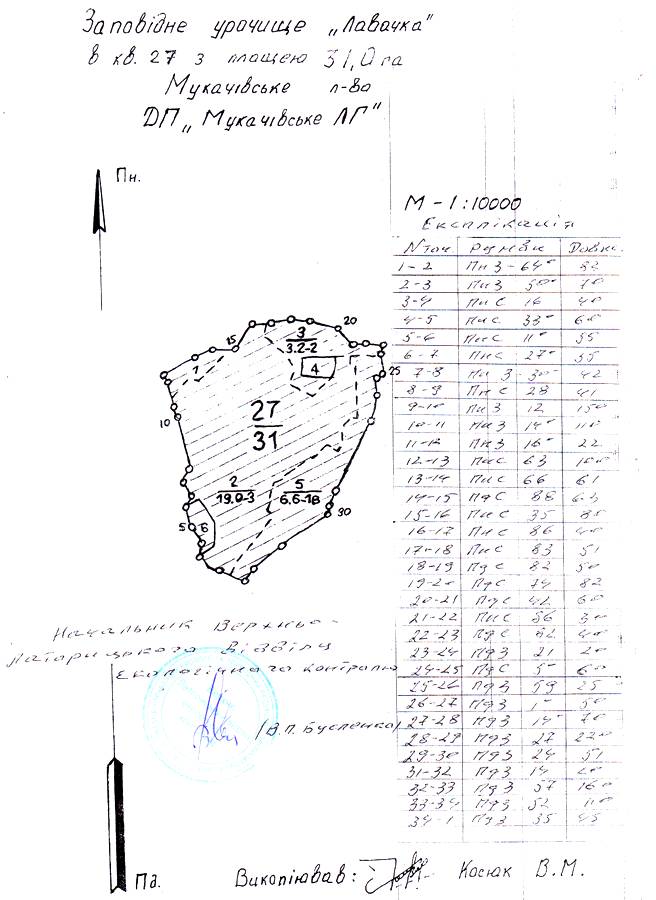 Заповідне урочище „Лавачка"
в кв. 27 з площею 31,0 га
Мукачівське л-во
ДП „Мукачівське ЛГ"
Пн.
М - 1:10000
Експлікація
N точ Румби Довж.
1-2 ПнЗ - 64°
2-3 ПнЗ 50° 70
3-4 ПнС 16 40
4-5 ПнС 33° 60
5-6 ПнС 11° 55
6-7 ПнС 27° 55
7-8 ПнЗ - 30° 42
8-9 ПнС 28 41
9-10 ПнЗ 12 150
10-11 ПнЗ 14° 110
11-12 ПнЗ 16° 22
12-13 ПнС 63 100
13-14 ПнС 66 61
14-15 ПдС 88 63
15-16 ПнС 35 85
16-17 ПнС 86 40
17-18 ПнС 83 51
18-19 ПдС 82 50
19-20 ПдС 74 82
20-21 ПдС 42 60
21-22 ПнС 86 30
22-23 ПдС 82 40
23-24 ПдЗ 21 20
24-25 ПдС 5° 60
25-26 ПдЗ 59 25
26-27 ПдЗ 1° 50
27-28 ПдЗ 14° 70
28-29 ПдЗ 27 220
29-30 ПдЗ 24 51
31-32 ПдЗ 14 20
32-33 ПдЗ 57 160
33-34 ПдЗ 52 110
34-1 ПдЗ 35 45
15
20
3
3.2-2
1
4
25
10
27
31
2
19.0-3
5
6.6-18
5
6
30
Начальник Верхньо-
Латорицького відділу
екологічного контролю
/В.П. Бусленко/
Пд.
Викопіював: Косюк В.М.